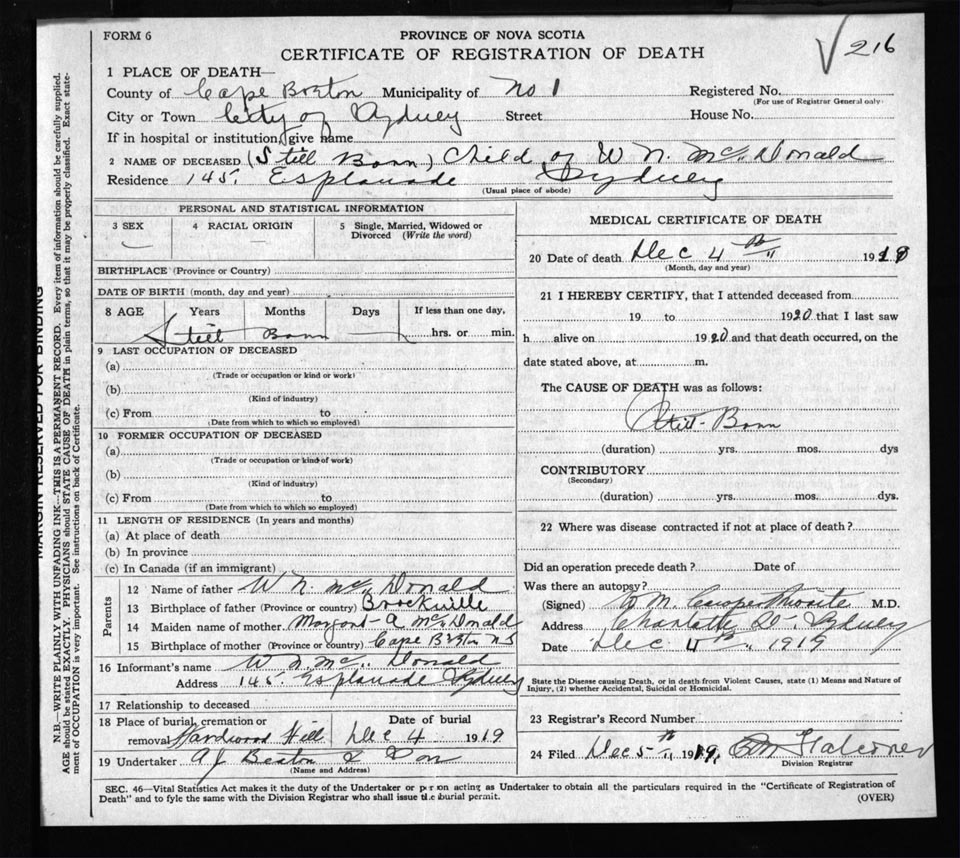 FORM 6
PROVINCE OF NOVA SCOTIA
CERTIFICATE OF REGISTRATION OF DEATH
√ 216
1 PLACE OF DEATH—
County of Cape Breton Municipality of No 1 Registered No.
(For use of Registrar General only)
City or Town City of Sydney Street House No.
If in hospital or institution, give name
2 NAME OF DECEASED (Still Born) Child of W N. Mc. Donald
Residence 145. Esplanade Sydney
(Usual place of abode)
PERSONAL AND STATISTICAL INFORMATION
3 SEX 4 RACIAL ORIGIN 5 Single, Married, Widowed or Divorced (Write the word)
BIRTHPLACE (Province or Country)
DATE OF BIRTH (month, day and year)
8 AGE Years Months Days If less than one day,
Still Born hrs. or min.
9 LAST OCCUPATION OF DECEASED
(a)
(Trade or occupation or kind or work)
(b)
(Kind of industry)
(c) From to
(Date from which to which so employed)
10 FORMER OCCUPATION OF DECEASED
(a)
(Trade or occupation or kind of work)
(b)
(Kind of industry)
(c) From to
(Date from which to which so employed)
11 LENGTH OF RESIDENCE (In years and months)
(a) At place of death
(b) In province
(c) In Canada (if an immigrant)
Parents
12 Name of father W N. Mc. Donald
13 Birthplace of father (Province or country) Brockville
14 Maiden name of mother Margaret A McDonald
15 Birthplace of mother (Province or country) Cape Breton N S
16 Informant's name W N. Mc. Donald
Address 145. Esplanade Sydney
17 Relationship to deceased
18 Place of burial, cremation or removal Hardwood Hill Date of burial Dec 4 1919
19 Undertaker A J Beaton & Son
(Name and Address)
MEDICAL CERTIFICATE OF DEATH
20 Date of death Dec 4th 1919
(Month, day and year)
21 I HEREBY CERTIFY, that I attended deceased from
19 to 1920 that I last saw
h alive on 1920 and that death occurred, on the
date stated above, at m.
The CAUSE OF DEATH was as follows:
Still-Born
(duration) yrs. mos. dys
CONTRIBUTORY
(Secondary)
(duration) yrs. mos. dys.
22 Where was disease contracted if not at place of death?
Did an operation precede death? Date of
Was there an autopsy?
(Signed) M. M.D.
Address Charlotte St Sydney
Date Dec 4th 1919
State the Disease causing Death, or in death from Violent Causes, state (1) Means and Nature of
Injury, (2) whether Accidental, Suicidal or Homicidal.
23 Registrar's Record Number
24 Filed Dec 5th 1919, Falconer
Division Registrar
SEC. 46—Vital Statistics Act makes it the duty of the Undertaker or person acting as Undertaker to obtain all the particulars required in the "Certificate of Registration of
Death" and to fyle the same with the Division Registrar who shall issue the burial permit.
(OVER)
MARGIN RESERVED FOR BINDING
N.B.—WRITE PLAINLY WITH UNFADING INK—THIS IS A PERMANENT RECORD. Every item of information should be carefully supplied.
AGE should be stated EXACTLY. PHYSICIANS should STATE CAUSE OF DEATH in plain terms, so that it may be properly classified. Exact state-
ment of OCCUPATION is very important. See instructions on back of Certificate.